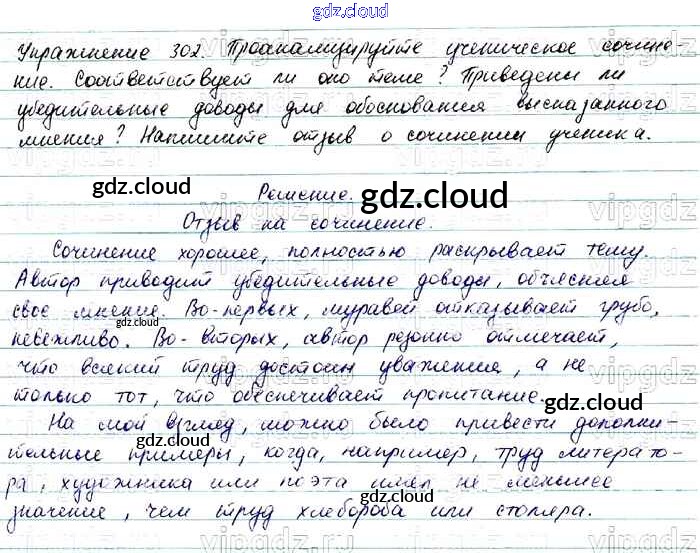 gdz.cloud
Упражнение 302. Проанализируйте ученическое сочине-
ние. Соответствует ли оно теме? Приведены ли
убедительные доводы для обоснования высказанного
мнения? Напишите отзыв о сочинении ученика.
Решение.
Отзыв на сочинение.
Сочинение хорошее, полностью раскрывает тему.
Автор приводит убедительные доводы, объясняя
свое мнение. Во-первых, муравей отказывает грубо,
невежливо. Во-вторых, автор резонно отмечает,
что всякий труд достоин уважения, а не
только тот, что обеспечивает пропитание.
На мой взгляд, можно было привести дополни-
тельные примеры, когда, например, труд литерато-
ра, художника или поэта имел не меньшее
значение, чем труд хлебороба или столяра.